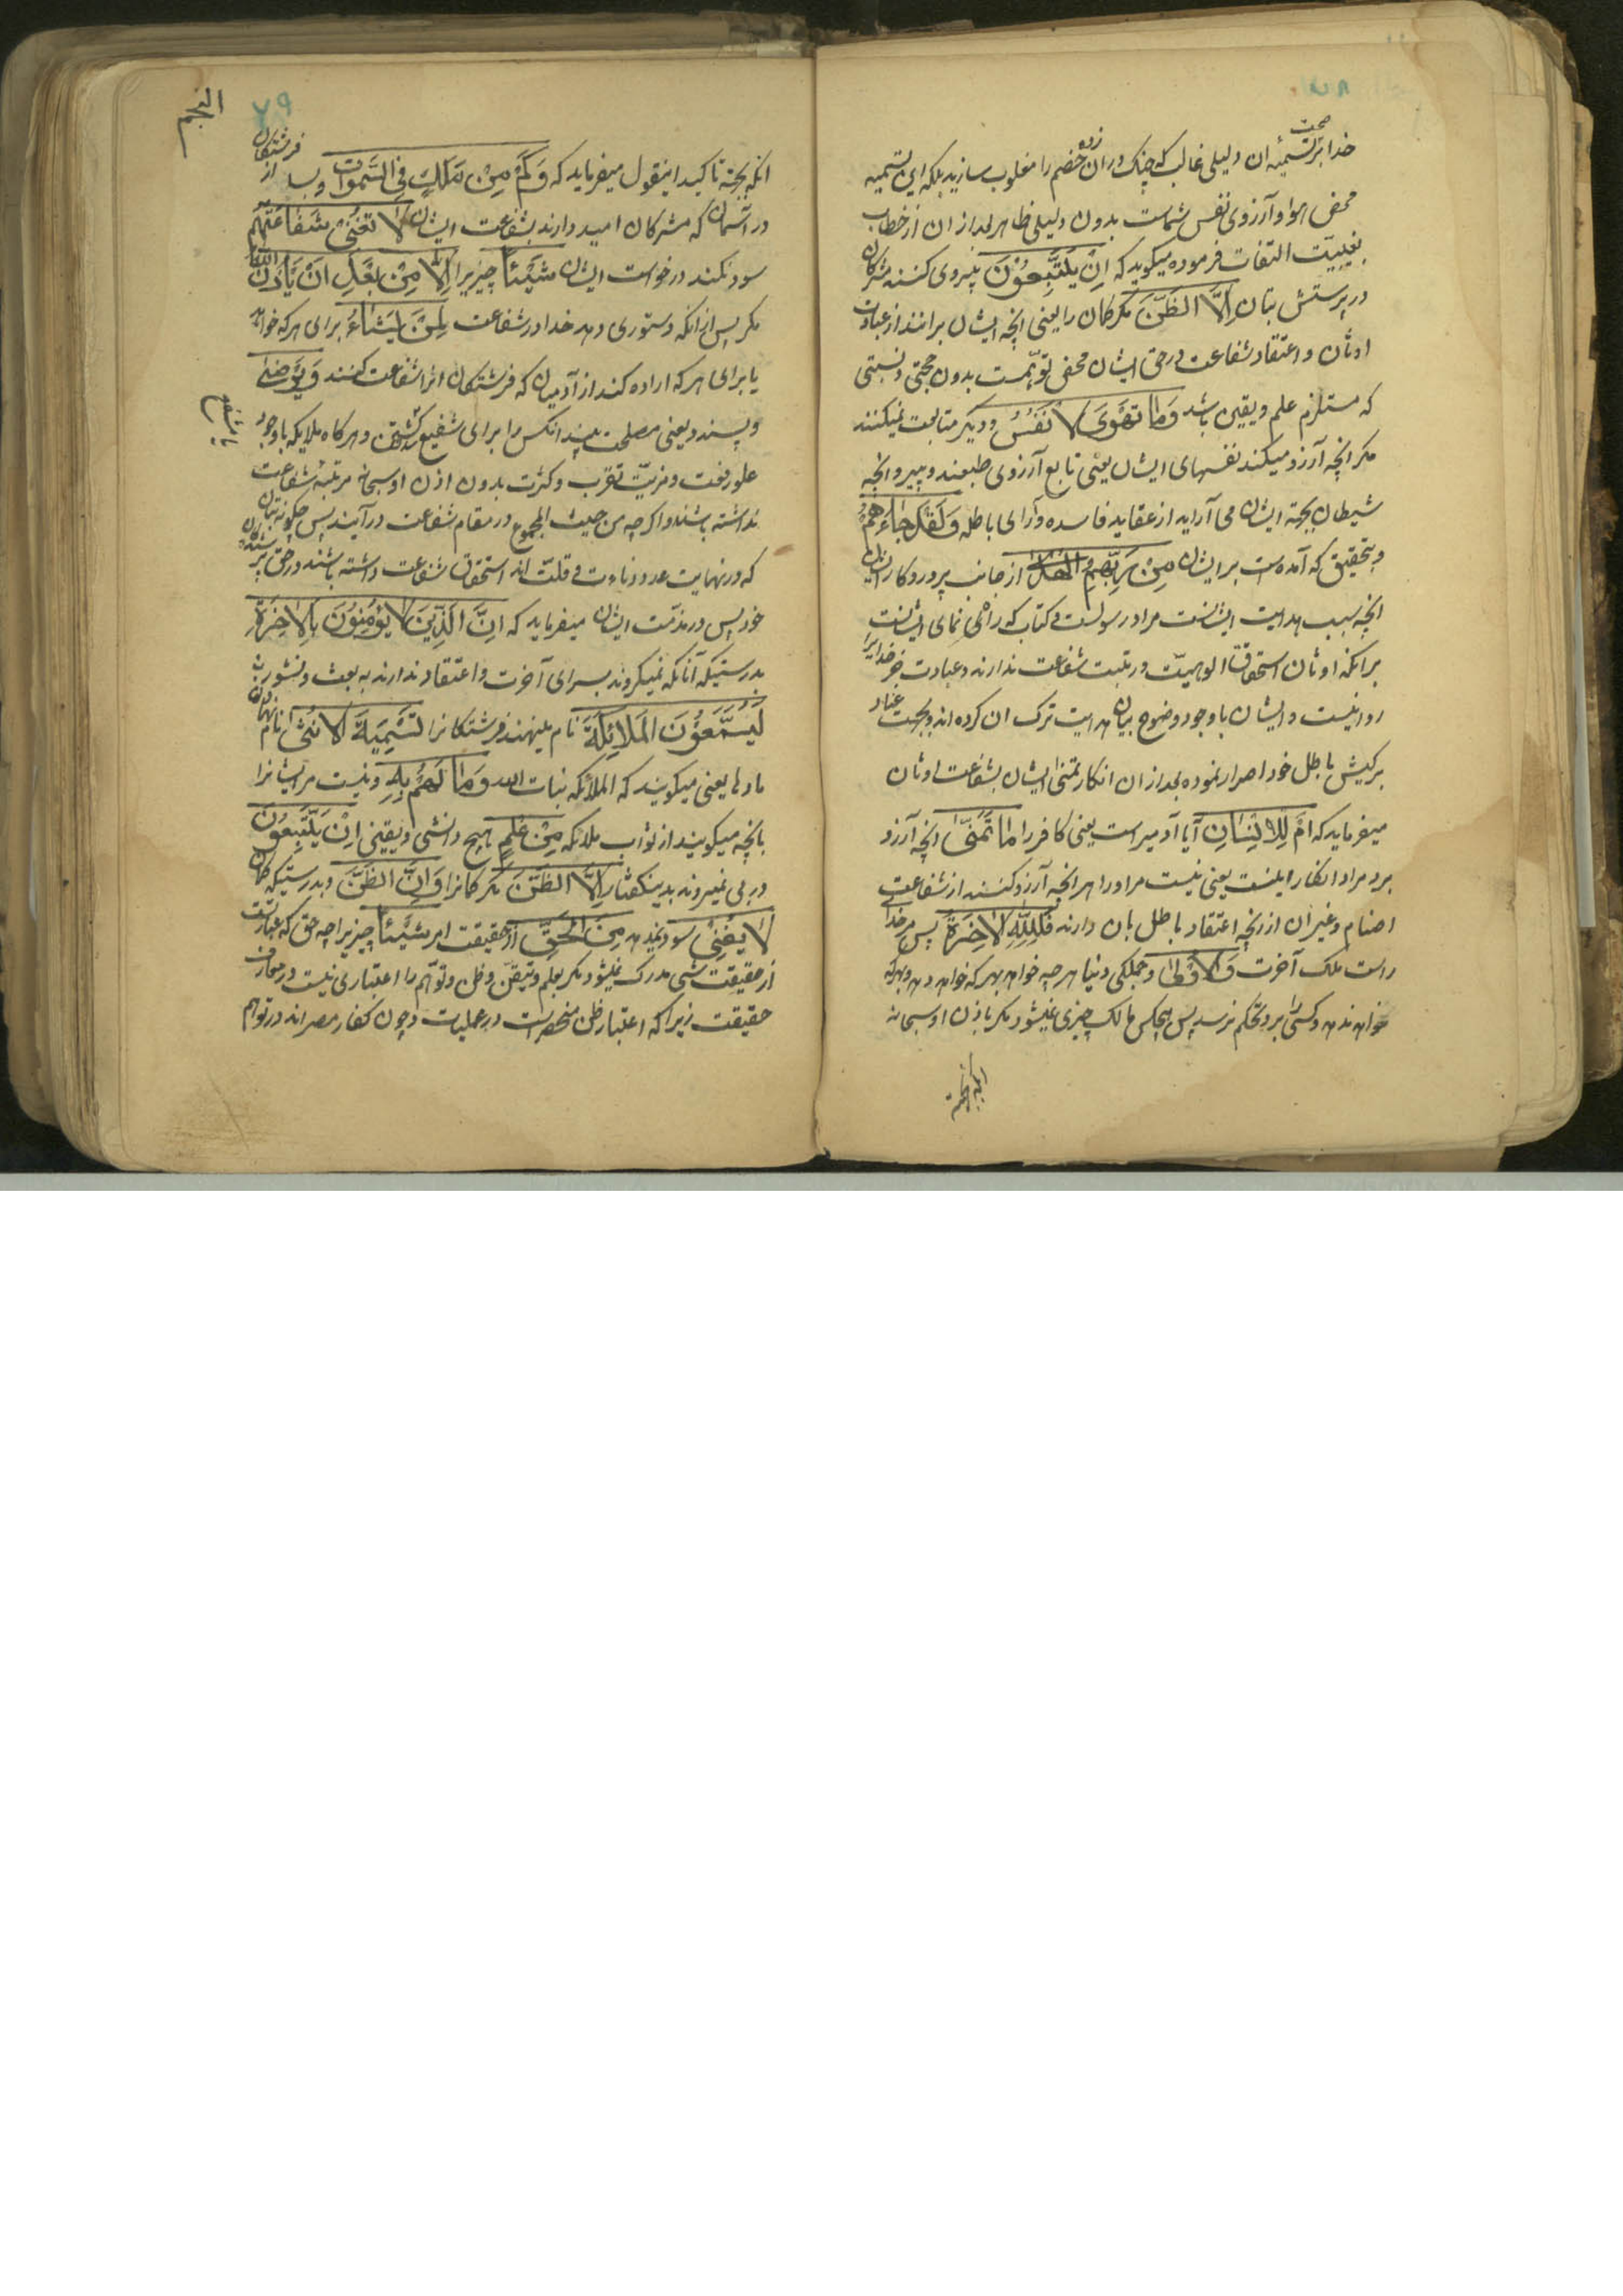 خدا بر تسمیهٔ ان دلیلی غالب که چنک دران زده خصم را مغلوب سازید بلکه این تسمیه
محض هوا و آرزوی نفس شماست بدون دلیلی ظاهر بعد از ان از خطاب
بغیبت التفات فرموده میکوید که اِنْ یَتَّبِعُوْنَ پیروی نمی کنند مشرکان
در پرستش بتان اِلَّا الظَّنَّ مکر کمان را یعنی انچه ایشان برانند از عبادت
اوثان و اعتقاد شفاعت در حق ایشان محض توهمست بدون حجتی و نسبتی
که مستلزم علم و یقین باشد وَمَا تَهْوَی الاَنْفُسُ و دیکر متابعت نمیکنند
مکر انچه آرزو میکند نفسهای ایشان یعنی تابع آرزوی طبعند و پیرو انچه
شیطان بجهة ایشان می آراید از عقاید فاسده و آرای باطله وَلَقَدْ جَاءَهُمْ
و بتحقیق که آمده است بر ایشان مِنْ رَبِّهِمُ الْهُدَی از جانب پروردکار ایشان
انچه سبب هدایت ایشانست مراد رسولست و کتاب که راه نمای ایشانست
برانکه اوثان استحقاق الوهیّت و رتبت شفاعت ندارند و عبادت جز خدایرا
روا نیست و ایشان با وجود وضوح بیان هدایت ترک ان کرده اند و بجهت عناد
بر کیش باطل خود اصرار نموده بعد از ان انکار تمنی ایشان بشفاعت اوثان
میفرماید که اَمْ لِلْاِنْسَانِ آیا آدمیراست یعنی کافر را مَا تَمَنَّی انچه آرزو
برد مراد انکار اینست یعنی نیست مر او را هر انچه آرزو کنند از شفاعت
اصنام و غیر ان از انچه اعتقاد باطل بان دارند فَلِلّٰهِ الْاٰخِرَةُ پس مر خدا
راست ملک آخرت وَالْاُوْلٰی و جملکی دنیا هر چه خواهد بهر که خواهد دهد و بهر که
خواهد ندهد و کسی را بر وی تحکم نرسد پس هیچکس مالک چیزی نمیشود مکر باذن او سبحانه
النجم
۷۹
انکه بجهة تاکید اینقول میفرماید که وَکَمْ مِنْ مَلَکٍ فِی السَّمٰوَاتِ و بسا از فرشتکان
در آسمان که مشرکان امید دارند بشفاعت ایشان لَا تُغْنِی شَفَاعَتُهُمْ
سود نکند درخواست ایشان شَیْئًا چیزیرا اِلَّا مِنْ بَعْدِ اَنْ یَأْذَنَ اللّٰهُ
مکر پس از انکه دستوری دهد خدا در شفاعت لِمَنْ یَشَاءُ برای هر که خواهد
یا برای هر که اراده کند از آدمیان که فرشتکان انرا شفاعت کنند وَیَرْضٰی
و پسندد یعنی مصلحت بیند انکس را برای شفیع کشتن و هر کاه ملایکه با وجود
علو رفعت و مزیّت تقرب و کثرت بدون اذن او سبحانه مرتبه شفاعت
نداشته باشند و اکر چه من حیث المجموع در مقام شفاعت در آیند پس چکونه بتان
که در نهایت عدد و دناءت و قلت اند استحقاق شفاعت داشته باشند در حق پرستندکان
خود پس در مذمّت ایشان میفرماید که اِنَّ الَّذِیْنَ لَا یُؤْمِنُوْنَ بِالْاٰخِرَةِ
بدرستیکه آنانکه نمیکروند بسرای آخرت و اعتقاد ندارند به بعث و نشور
لَیُسَمُّوْنَ الْمَلَائِکَةَ نام مینهند فرشتکانرا تَسْمِیَةَ الْاُنْثٰی نام نهادن
ماده ها یعنی میکویند که الملائکه بنات الله وَمَا لَهُمْ بِهِ و نیست مر ایشانرا
بانچه میکویند از ملائکه مِنْ عِلْمٍ هیچ دانشی و یقینی اِنْ یَتَّبِعُوْنَ
در پی نمیروند بدین کفتار اِلَّا الظَّنَّ مکر کمانرا وَاِنَّ الظَّنَّ و بدرستیکه کمان
لَا یُغْنِی سود ندهد مِنَ الْحَقِّ از حقیقت امر شَیْئًا چیزیرا چه حق که عبارتست
از حقیقت شی مدرک نمیشود مکر بعلم و تیقن و ظن و توهم را اعتباری نیست در معارف
حقیقت زیرا که اعتبار ظن منحصر است در عملیات و چون کفار مصر اند در توهم